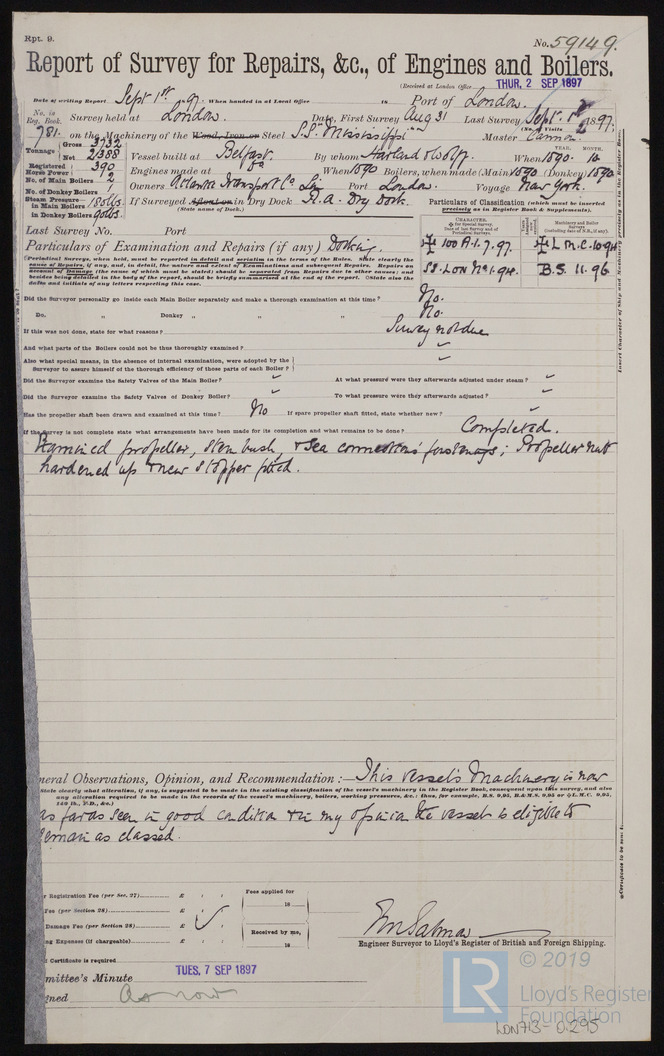 Rpt. 9.
No. 59149.
Report of Survey for Repairs, &c., of Engines and Boilers.
(Received at London Office THUR, 2 SEP 1897
Date of writing Report Sept 1st 97. When handed in at Local Office 18 Port of London.
No. in Reg. Book. 781. Survey held at London. Date, First Survey Aug 31 Last Survey Sept. 1st 1897.
(No. of Visits 2)
on the Machinery of the Wood, Iron or Steel S.S. "Mississippi" Master Cannon.
Tonnage Gross 3732 Net 2388 Vessel built at Belfast. By whom Harland & Wolff. When 1890. YEAR. MONTH. 10
Registered Horse Power 390 Engines made at Do When 1890 Boilers, when made (Main) 1890 (Donkey) 1890
No. of Main Boilers 2
No. of Donkey Boilers 1 Owners Atlantic Transport Co. Lim Port London. Voyage New York.
Steam Pressure in Main Boilers 180 lbs. in Donkey Boilers 90 lbs. If Surveyed Afloat or in Dry Dock R. A. Dry Dock.
(State name of Dock.)
Particulars of Classification (which must be inserted precisely as in Register Book & Supplements).
Last Survey No. Port
CHARACTER.
Machinery and Boiler Surveys
Particulars of Examination and Repairs (if any) Docking.
✠ 100 A.1. 7.97. ✠ L.M.C. 10.94
SS. LON No 1. 94. B.S. 11.96
(Periodical Surveys, when held, must be reported in detail and seriatim in the terms of the Rules. State clearly the cause of Repairs, if any, and, in detail, the nature and extent of Examinations and subsequent Repairs. Repairs on account of Damage (the cause of which must be stated) should be separated from Repairs due to other causes; and besides being detailed in the body of the report, should be briefly summarized at the end of the report. State also the dates and initials of any letters respecting this case.
Did the Surveyor personally go inside each Main Boiler separately and make a thorough examination at this time? No.
Do. Donkey " " " No.
If this was not done, state for what reasons? Survey not due
And what parts of the Boilers could not be thus thoroughly examined?
Also what special means, in the absence of internal examination, were adopted by the Surveyor to assure himself of the thorough efficiency of those parts of each Boiler?
Did the Surveyor examine the Safety Valves of the Main Boiler? At what pressure were they afterwards adjusted under steam?
Did the Surveyor examine the Safety Valves of Donkey Boiler? To what pressure were they afterwards adjusted?
Has the propeller shaft been drawn and examined at this time? No If spare propeller shaft fitted, state whether new?
If the Survey is not complete state what arrangements have been made for its completion and what remains to be done? Completed.
Examined propeller, stern bush, & sea connections fastenings; Propeller nut
hardened up & new stopper fitted.
neral Observations, Opinion, and Recommendation:— This vessel's Machinery is now
(State clearly what alteration, if any, is suggested to be made in the existing classification of the vessel's machinery in the Register Book, consequent upon this survey, and also any alteration required to be made in the records of the vessel's machinery, boilers, working pressures, &c.: thus, for example, B.S. 9,95, B.&M.S. 9,95 or ✠L.M.C. 9,95, 140 lb., F.D., &c.)
as far as seen in good condition & in my opinion the vessel is eligible to
remain as classed.
r Registration Fee (per Sec. 27) £ : : Fees applied for
Fee (per Section 28) £ : : 18
Damage Fee (per Section 28) £ : : Received by me,
ng Expenses (if chargeable) £ : : 18
Engineer Surveyor to Lloyd's Register of British and Foreign Shipping.
f Certificate is required
mmittee's Minute TUES, 7 SEP 1897
gned As now
Insert Character of Ship and Machinery precisely as in the Register Book.
LR © 2019
Lloyd's Register
Foundation
LON713-0295